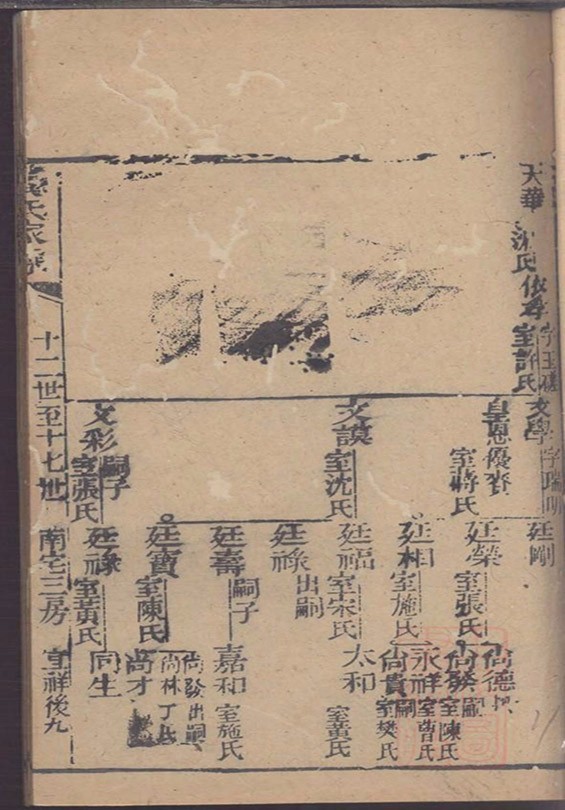 天華
沈氏
室許氏
字玉
文學
字瑞明
皇恩優賚
室蔣氏
文謨
室沈氏
文彩
嗣子
室張氏
廷剛
廷榮
室張氏
廷相
室施氏
廷福
室宋氏
廷祿
出嗣
廷壽
嗣子
廷寶
室陳氏
廷祿
室黃氏
尚德
尚發
嗣
室陳氏
永祥
室曹氏
尚貴
嗣
室樊氏
太和
室黃氏
嘉和
室施氏
尚發出嗣
尚林丁氏
尚才
同生
氏家
十二世至十七世
南宅三房
宣祥後九